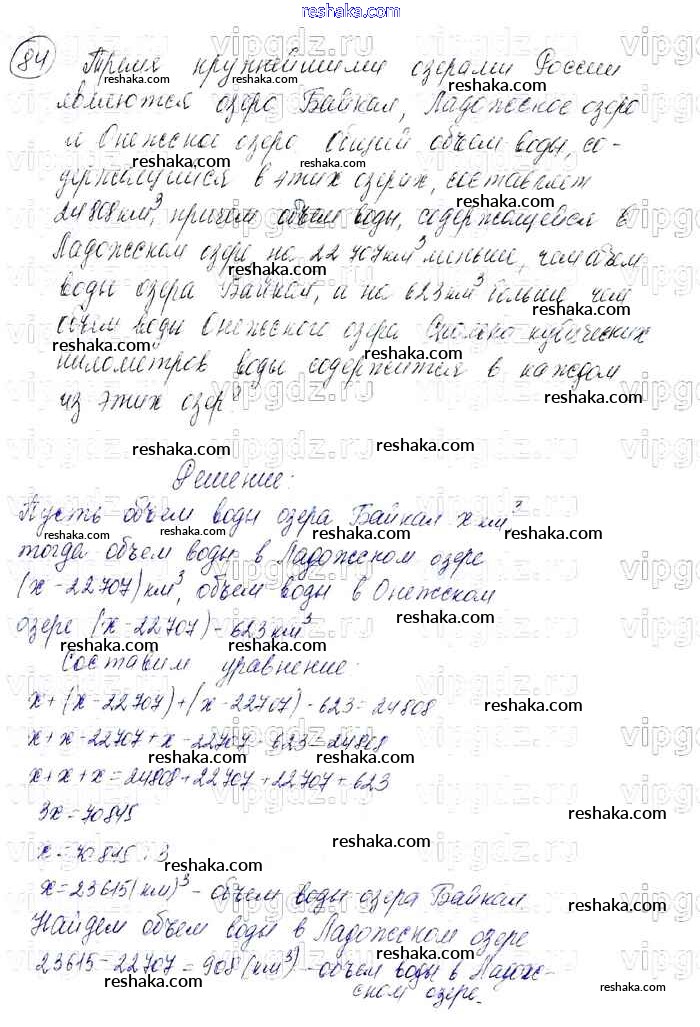 reshaka.com
84 Тремя крупнейшими озерами России
являются озеро Байкал, Ладожское озеро
и Онежское озеро. Общий объем воды, со-
держащийся в этих озерах, составляет
24808 км³, причем объем воды, содержащейся в
Ладожском озере на 22 707 км³ меньше, чем объем
воды озера Байкал, и на 623 км³ больше чем
объем воды Онежского озера. Сколько кубических
километров воды содержится в каждом
из этих озер?
Решение:
Пусть объем воды озера Байкал x км³
тогда объем воды в Ладожском озере
(x-22707) км³, объем воды в Онежском
озере (x-22707)-623 км³
Составим уравнение:
x+(x-22707)+(x-22707)-623=24808
x+x-22707+x-22707-623=24808
x+x+x=24808+22707+22707+623
3x=70845
x=70845:3
x=23615(км)³ - объем воды озера Байкал
Найдем объем воды в Ладожском озере
23615-22707=908(км³) - объем воды в Ладож-
ском озере.